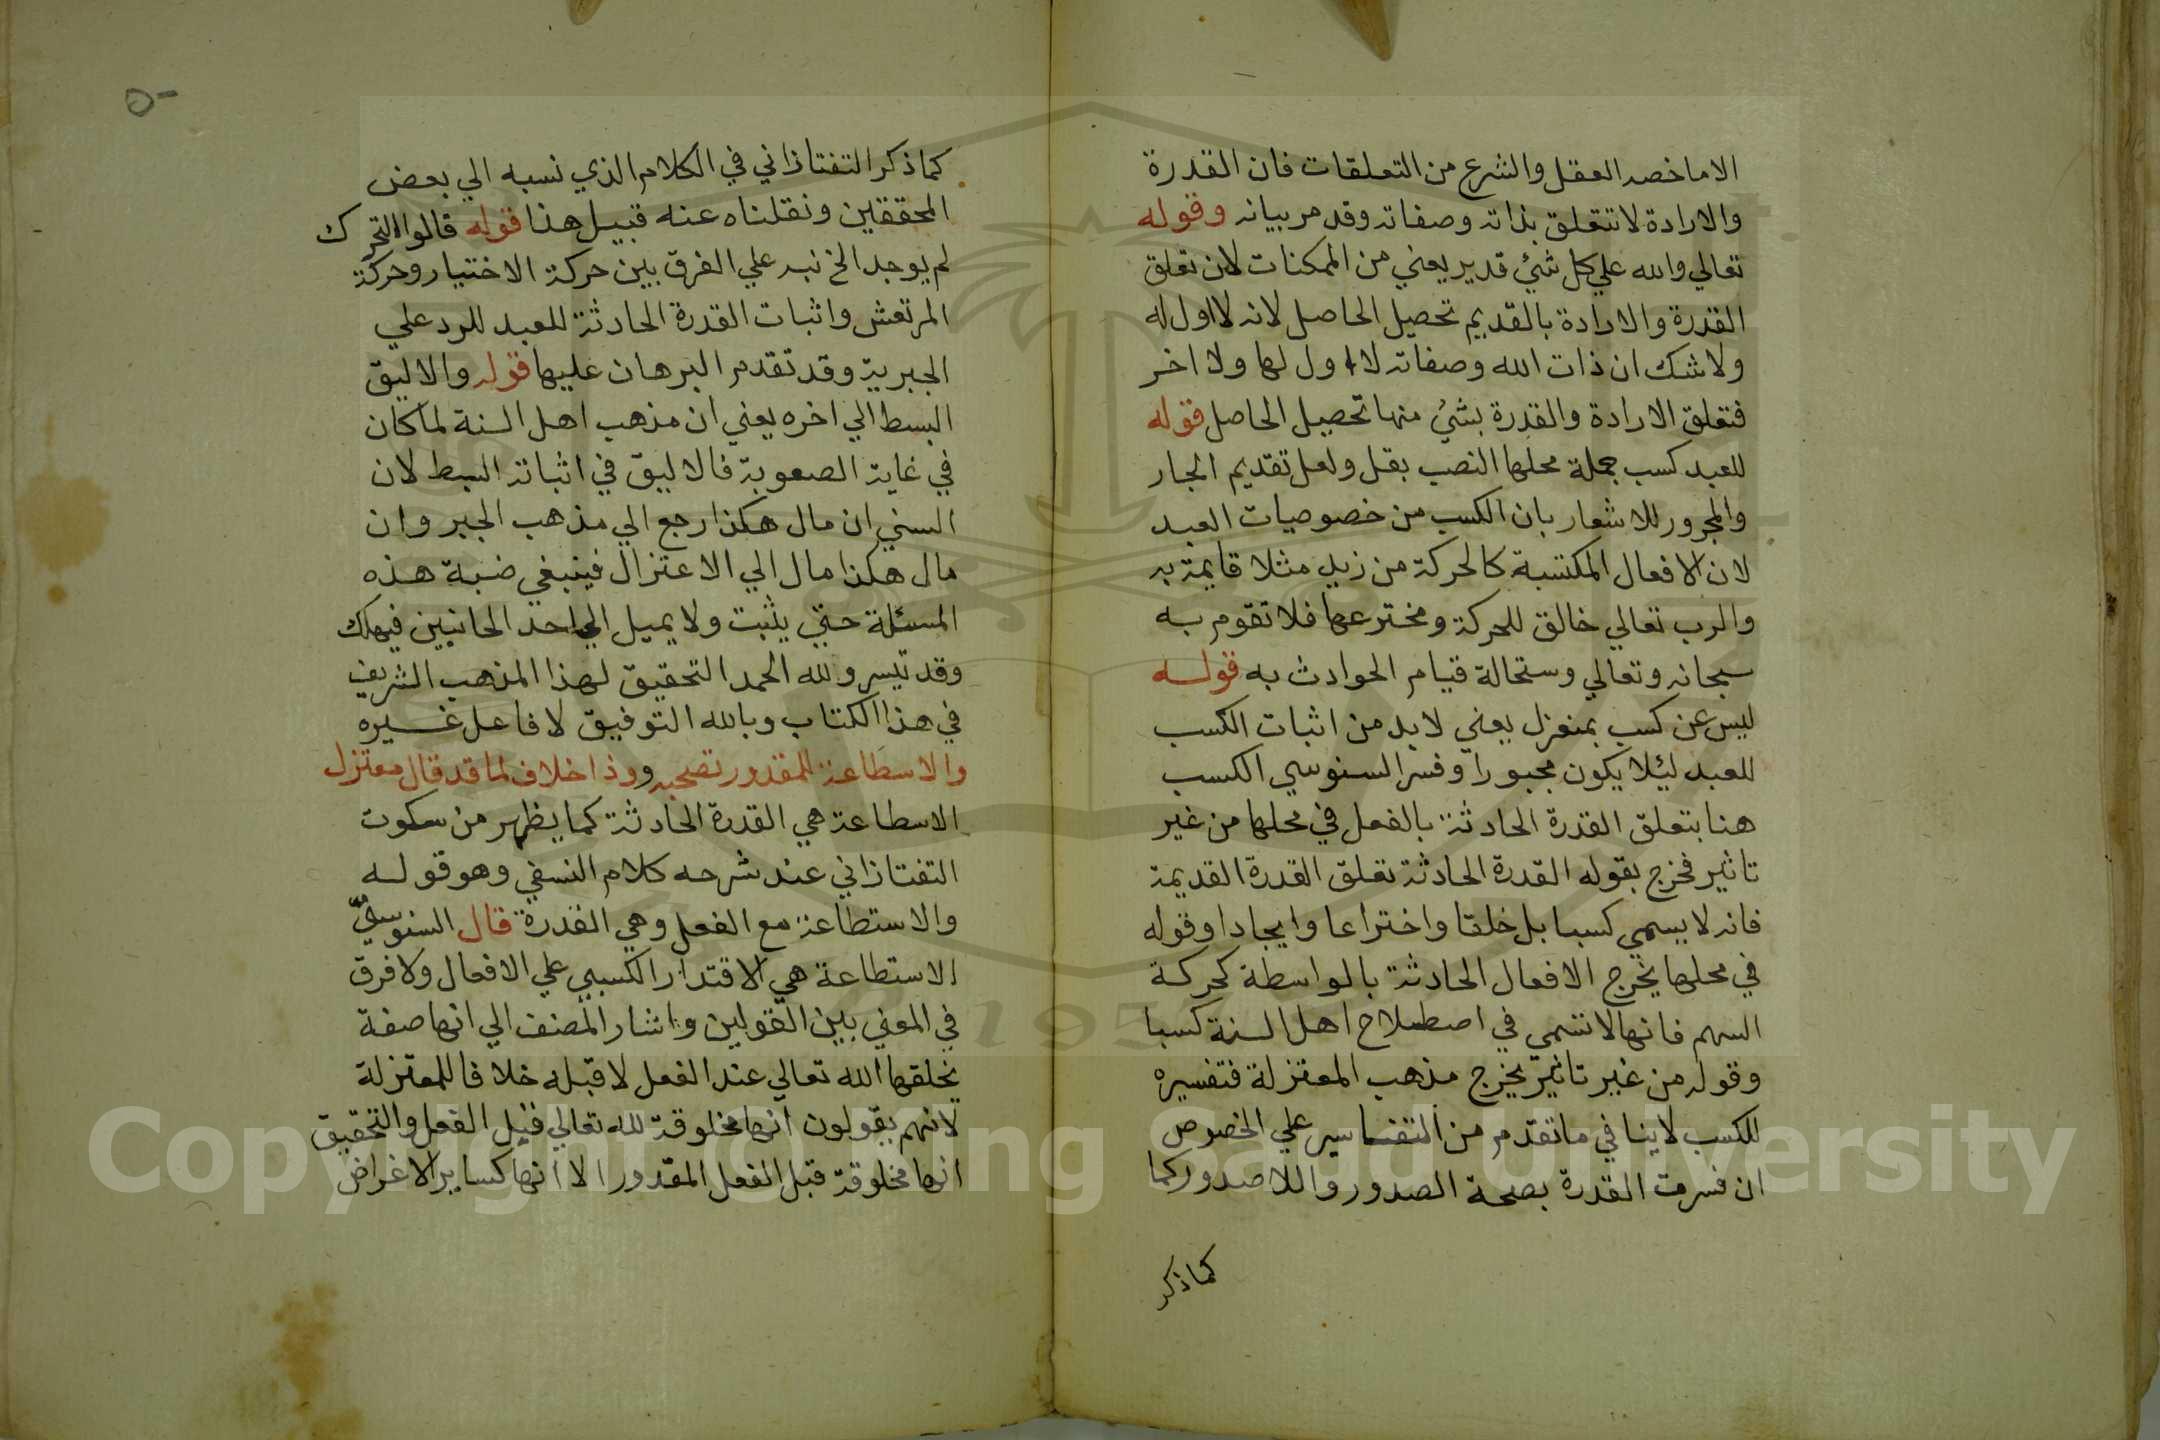 الا ما خصه العقل والشرع من التعلقات فان القدرة
والارادة لا تتعلق بذاته وصفاته وقد مر بيانه وقوله
تعالي والله علي كل شئ قدير يعني من الممكنات لان تعلق
القدرة والارادة بالقديم تحصيل الحاصل لانه لا اول له
ولا شك ان ذات الله وصفاته لا اول لها ولا اخر
فتعلق الارادة والقدرة بشئ منها تحصيل الحاصل قوله
للعبد كسب جملة محلها النصب بقل ولعل تقديم الجار
والمجرور للاشعار بان الكسب من خصوصيات العبد
لان الافعال المكتسبة كالحركة من زيد مثلا قايمة به
والرب تعالي خالق للحركة ومخترعها فلا تقوم به
سبحانه وتعالي وستحالة قيام الحوادث به قوله
ليس عن كسب بمنعزل يعني لا بد من اثبات الكسب
للعبد ليئلا يكون مجبورا وفسر السنوسي الكسب
هنا بتعلق القدرة الحادثة بالفعل في محلها من غير
تاثير فخرج بقوله القدرة الحادثة تعلق القدرة القديمة
فانه لا يسمي كسبا بل خلقا واختراعا وايجادا وقوله
في محلها يخرج الافعال الحادثة بالواسطة كحركة
السهم فانها لا تسمي في اصطلاح اهل السنة كسبا
وقوله من غير تاثير يخرج مذهب المعتزلة فتفسيره
للكسب لا ينافي ما تقدم من التفاسير علي الخصوص
ان فسرت القدرة بصحة الصدور واللاصدور كما
كما ذكر
٥٠
كما ذكر التفتازاني في الكلام الذي نسبه الي بعض
المحققين ونقلناه عنه قبيل هذا قوله قالوا التحرك
لم يوجد الخ نبه علي الفرق بين حركة الاختيار وحركة
المرتعش واثبات القدرة الحادثة للعبد للرد علي
الجبرية وقد تقدم البرهان عليها قوله والاليق
البسط الي اخره يعني ان مذهب اهل السنة لما كان
في غاية الصعوبة فالاليق في اثباته البسط لان
السني ان مال هكذا رجع الي مذهب الجبر وان
مال هكذا مال الي الاعتزال فينبغي ضبة هذه
المسئلة حتي يثبت ولا يميل الي احد الجانبين فيهلك
وقد تيسر ولله الحمد التحقيق لهذا المذهب الشريف
في هذا الكتاب وبالله التوفيق لا فاعل غيره
والاسطاعة للمقدور تصحبه وذا خلاف لما قد قال معتزل
الاسطاعة هي القدرة الحادثة كما يظهر من سكوت
التفتازاني عند شرحه كلام النسفي وهو قوله
والاستطاعة مع الفعل وهي القدرة قال السنوسي
الاستطاعة هي الاقتدار الكسبي علي الافعال ولا فرق
في المعني بين القولين واشار المصنف الي انها صفة
يخلقها الله تعالي عند الفعل لا قبله خلافا للمعتزلة
لانهم يقولون انها مخلوقة لله تعالي قبل الفعل والتحقيق
انها مخلوقة قبل الفعل المقدور الا انها كساير الاغراض
Copyright © King Saud University